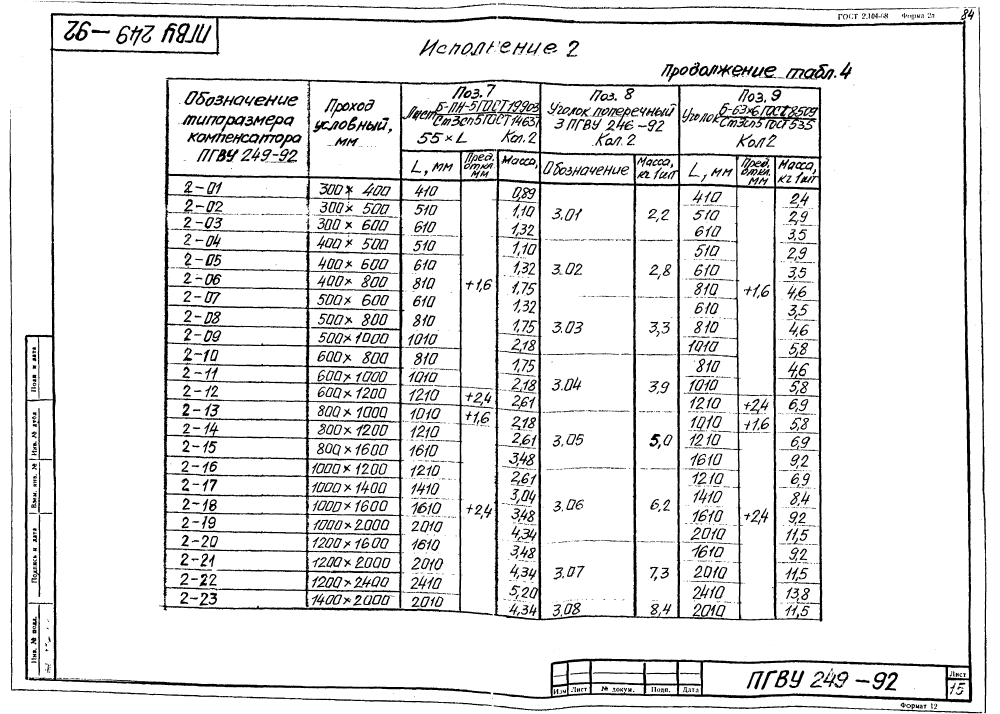 ГОСТ 2.104-68 Форма 2а 84
ПГВУ 249-92
Исполнение 2
Продолжение табл. 4
Обозначение типоразмера компенсатора ПГВУ 249-92
Проход условный, мм
Поз. 7
Лист Б-ПН-5 ГОСТ 19903
Ст3сп5 ГОСТ 14637
55×L Кол. 2
Поз. 8
Уголок поперечный
3 ПГВУ 246-92
Кол. 2
Поз. 9
Уголок Б-63×6 ГОСТ 8509
Ст3сп5 ГОСТ 535
Кол 2
L, мм Пред. откл мм Масса, Обозначение Масса, кг 1 шт L, мм Пред. откл. мм Масса, кг 1 шт
2-01 300 × 400 410 0,89 410 2,4
2-02 300 × 500 510 1,10 3.01 2,2 510 2,9
2-03 300 × 600 610 1,32 610 3,5
2-04 400 × 500 510 1,10 510 2,9
2-05 400 × 600 610 1,32 3.02 2,8 610 3,5
2-06 400 × 800 810 +1,6 1,75 810 +1,6 4,6
2-07 500 × 600 610 1,32 610 3,5
2-08 500 × 800 810 1,75 3.03 3,3 810 4,6
2-09 500 × 1000 1010 2,18 1010 5,8
2-10 600 × 800 810 1,75 810 4,6
2-11 600 × 1000 1010 2,18 3.04 3,9 1010 5,8
2-12 600 × 1200 1210 +2,4 2,61 1210 +2,4 6,9
2-13 800 × 1000 1010 +1,6 2,18 1010 +1,6 5,8
2-14 800 × 1200 1210 2,61 3.05 5,0 1210 6,9
2-15 800 × 1600 1610 3,48 1610 9,2
2-16 1000 × 1200 1210 2,61 1210 6,9
2-17 1000 × 1400 1410 3,04 1410 8,4
2-18 1000 × 1600 1610 +2,4 3,48 3.06 6,2 1610 +2,4 9,2
2-19 1000 × 2000 2010 4,34 2010 11,5
2-20 1200 × 1600 1610 3,48 1610 9,2
2-21 1200 × 2000 2010 4,34 3.07 7,3 2010 11,5
2-22 1200 × 2400 2410 5,20 2410 13,8
2-23 1400 × 2000 2010 4,34 3.08 8,4 2010 11,5
Подп и дата
Инв. № дубл
Взам. инв. №
Подпись и дата
Инв. № подл.
Изм Лист № докум. Подп. Дата
ПГВУ 249-92
Лист
15
Формат 12